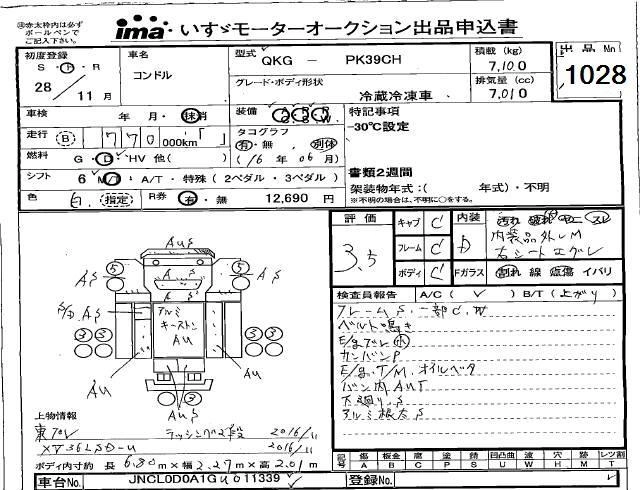 ※赤太枠内は必ず
ボールペンで
ご記入下さい。
ima いすゞモーターオークション出品申込書
初度登録
S・H・R
28 / 11月
車名
コンドル
型式 QKG - PK39CH
グレード・ボディ形状
冷蔵冷凍車
積載 (kg)
7,100
排気量 (cc)
7,010
出品No
1028
車検 年 月・抹消
装備 A/C P/S P/W
特記事項
-30℃設定
書類2週間
架装物年式:( 年式)・不明
※不明の場合は、不明に○をする。
走行 (B) 770 000km「 」
タコグラフ
有・無 別体
('16年06月)
燃料 G・D・HV 他( )
シフト 6 M/T・A/T・特殊(2ペダル・3ペダル)
色 白 (指定)
R券 有・無 12,690 円
評価
3.5
キャブ C
フレーム C
ボディ C
内装 D
内装品外しM
右シートエグレ
Fガラス 割れ 線 飛傷 イバリ
検査員報告 A/C( ✓ ) B/T(上がり)
フレームS.一部C.W
ベルト鳴き
E/gオイル
カンバンP
E/g.T/M.オイルベタ
バン内AUT
下廻りS
アルミ根太S
AUS
AS
⑤
⑤
AS
AS
S/D AS
アルミ
キーストン
AU
AS
③③
③③
AU
AU
AUS
上物情報
東プレ ラッシング2段 2016/11
XV36LSD-U 2016/11
ボディ内寸約 長 6.80 m×幅 2.27 m×高 2.01 m
記号 傷 板金 腐 凹 塗 錆 凹凸曲 波 穴 跡 レツ割
A B C P S U W H M T
車台No. JNCL0D0A1GU011339
登録No.